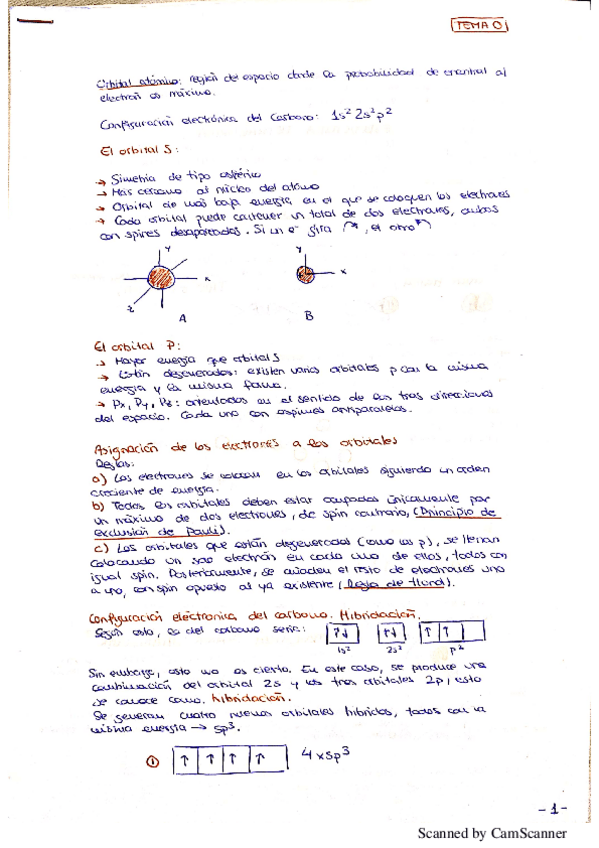 TEMA 0
Orbital atómico: región del espacio donde la probabilidad de encontrar al
electrón es máximo.
Configuración electrónica del Carbono: 1s² 2s² p²
El orbital S:
→ Simetría de tipo esférico
→ Más cercano al núcleo del átomo
→ Orbital de más baja energía en el que se coloquen los electrones
→ Cada orbital puede contener un total de dos electrones, ambos
con spines desapareados. Si un e⁻ gira ↷, el otro ↶
Y
X
Z
A
Y
X
B
El orbital P:
→ Mayor energía que orbital S
→ Están degenerados: existen varios orbitales p con la misma
energía y la misma forma.
→ Px, Py, Pz: orientados en el sentido de las tres direcciones
del espacio. Cada uno con espines antiparalelos.
Asignación de los electrones a los orbitales
Reglas:
a) Los electrones se colocan en los orbitales siguiendo un orden
creciente de energía.
b) Todos los orbitales deben estar ocupados únicamente por
un máximo de dos electrones, de spin contrario, (Principio de
exclusión de Pauli).
c) Los orbitales que están degenerados (como los p), se llenan
colocando un solo electrón en cada uno de ellos, todos con
igual spin. Posteriormente, se añaden el resto de electrones uno
a uno, con spin opuesto al ya existente (Regla de Hund).
Configuración electronica del carbono. Hibridación.
Según esto, la del carbono sería: ↑↓ ↑↓ ↑ ↑
1s² 2s² p²
Sin embargo, esto no es cierto. En este caso, se produce una
combinación del orbital 2s y los tres orbitales 2p, esto
se conoce como hibridación.
Se generan cuatro nuevos orbitales híbridos, todos con la
misma energía → sp³.
① ↑ ↑ ↑ ↑ 4 x sp³
- 1 -
Scanned by CamScanner